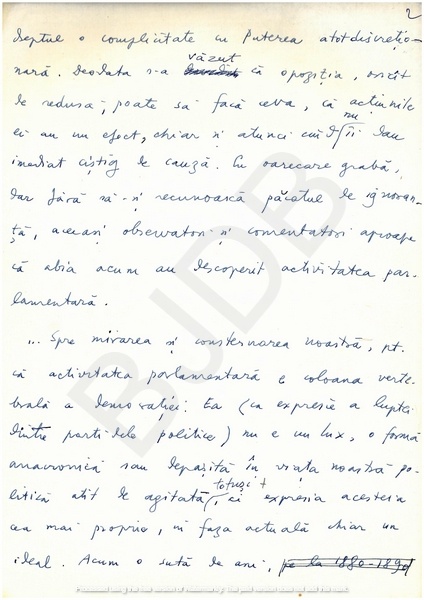 2
dreptul o complicitate cu Puterea atotdiscrețio-
nară. Deodata s-a văzut că opoziția, oricît
de redusă, poate să facă ceva, că acțiunile
ei au un efect, chiar și atunci cînd nu îi dau
imediat cîștig de cauză. Cu oarecare grabă,
dar fără să-și recunoască păcatul de ignoran-
ță, aceeași observatori și comentatori aproape
că abia acum au descoperit activitatea par-
lamentară.
... Spre mirarea și consternarea noastră, pt.
că activitatea parlamentară e coloana verte-
brală a democrației. Ea (ca expresie a luptei
dintre partidele politice) nu e un lux, o formă
anacronică sau depășită în viața noastră po-
litică atît de agitată totuși, ci expresia acesteia
cea mai proprie, în faza actuală chiar un
ideal. Acum o sută de ani, pe la 1880-1890
BJDB